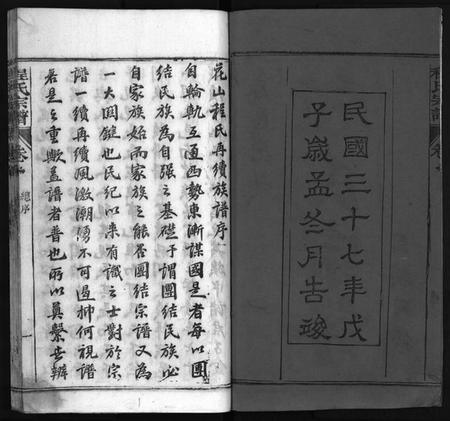 民國三十七年戊
子歲孟冬月告竣
花山程氏再續族譜序
自輪軌互通西勢東漸謀國是者每以團
結民族為自強之基礎予謂團結民族必
自家族始而家族之能否團結宗譜又為
一大關鍵也民紀以來有識之士對於宗
譜一續再續風激潮湧不可遏抑何視譜
若是之重歟蓋譜者普也所以奠繫世辨
程氏宗譜
卷首
總序
一